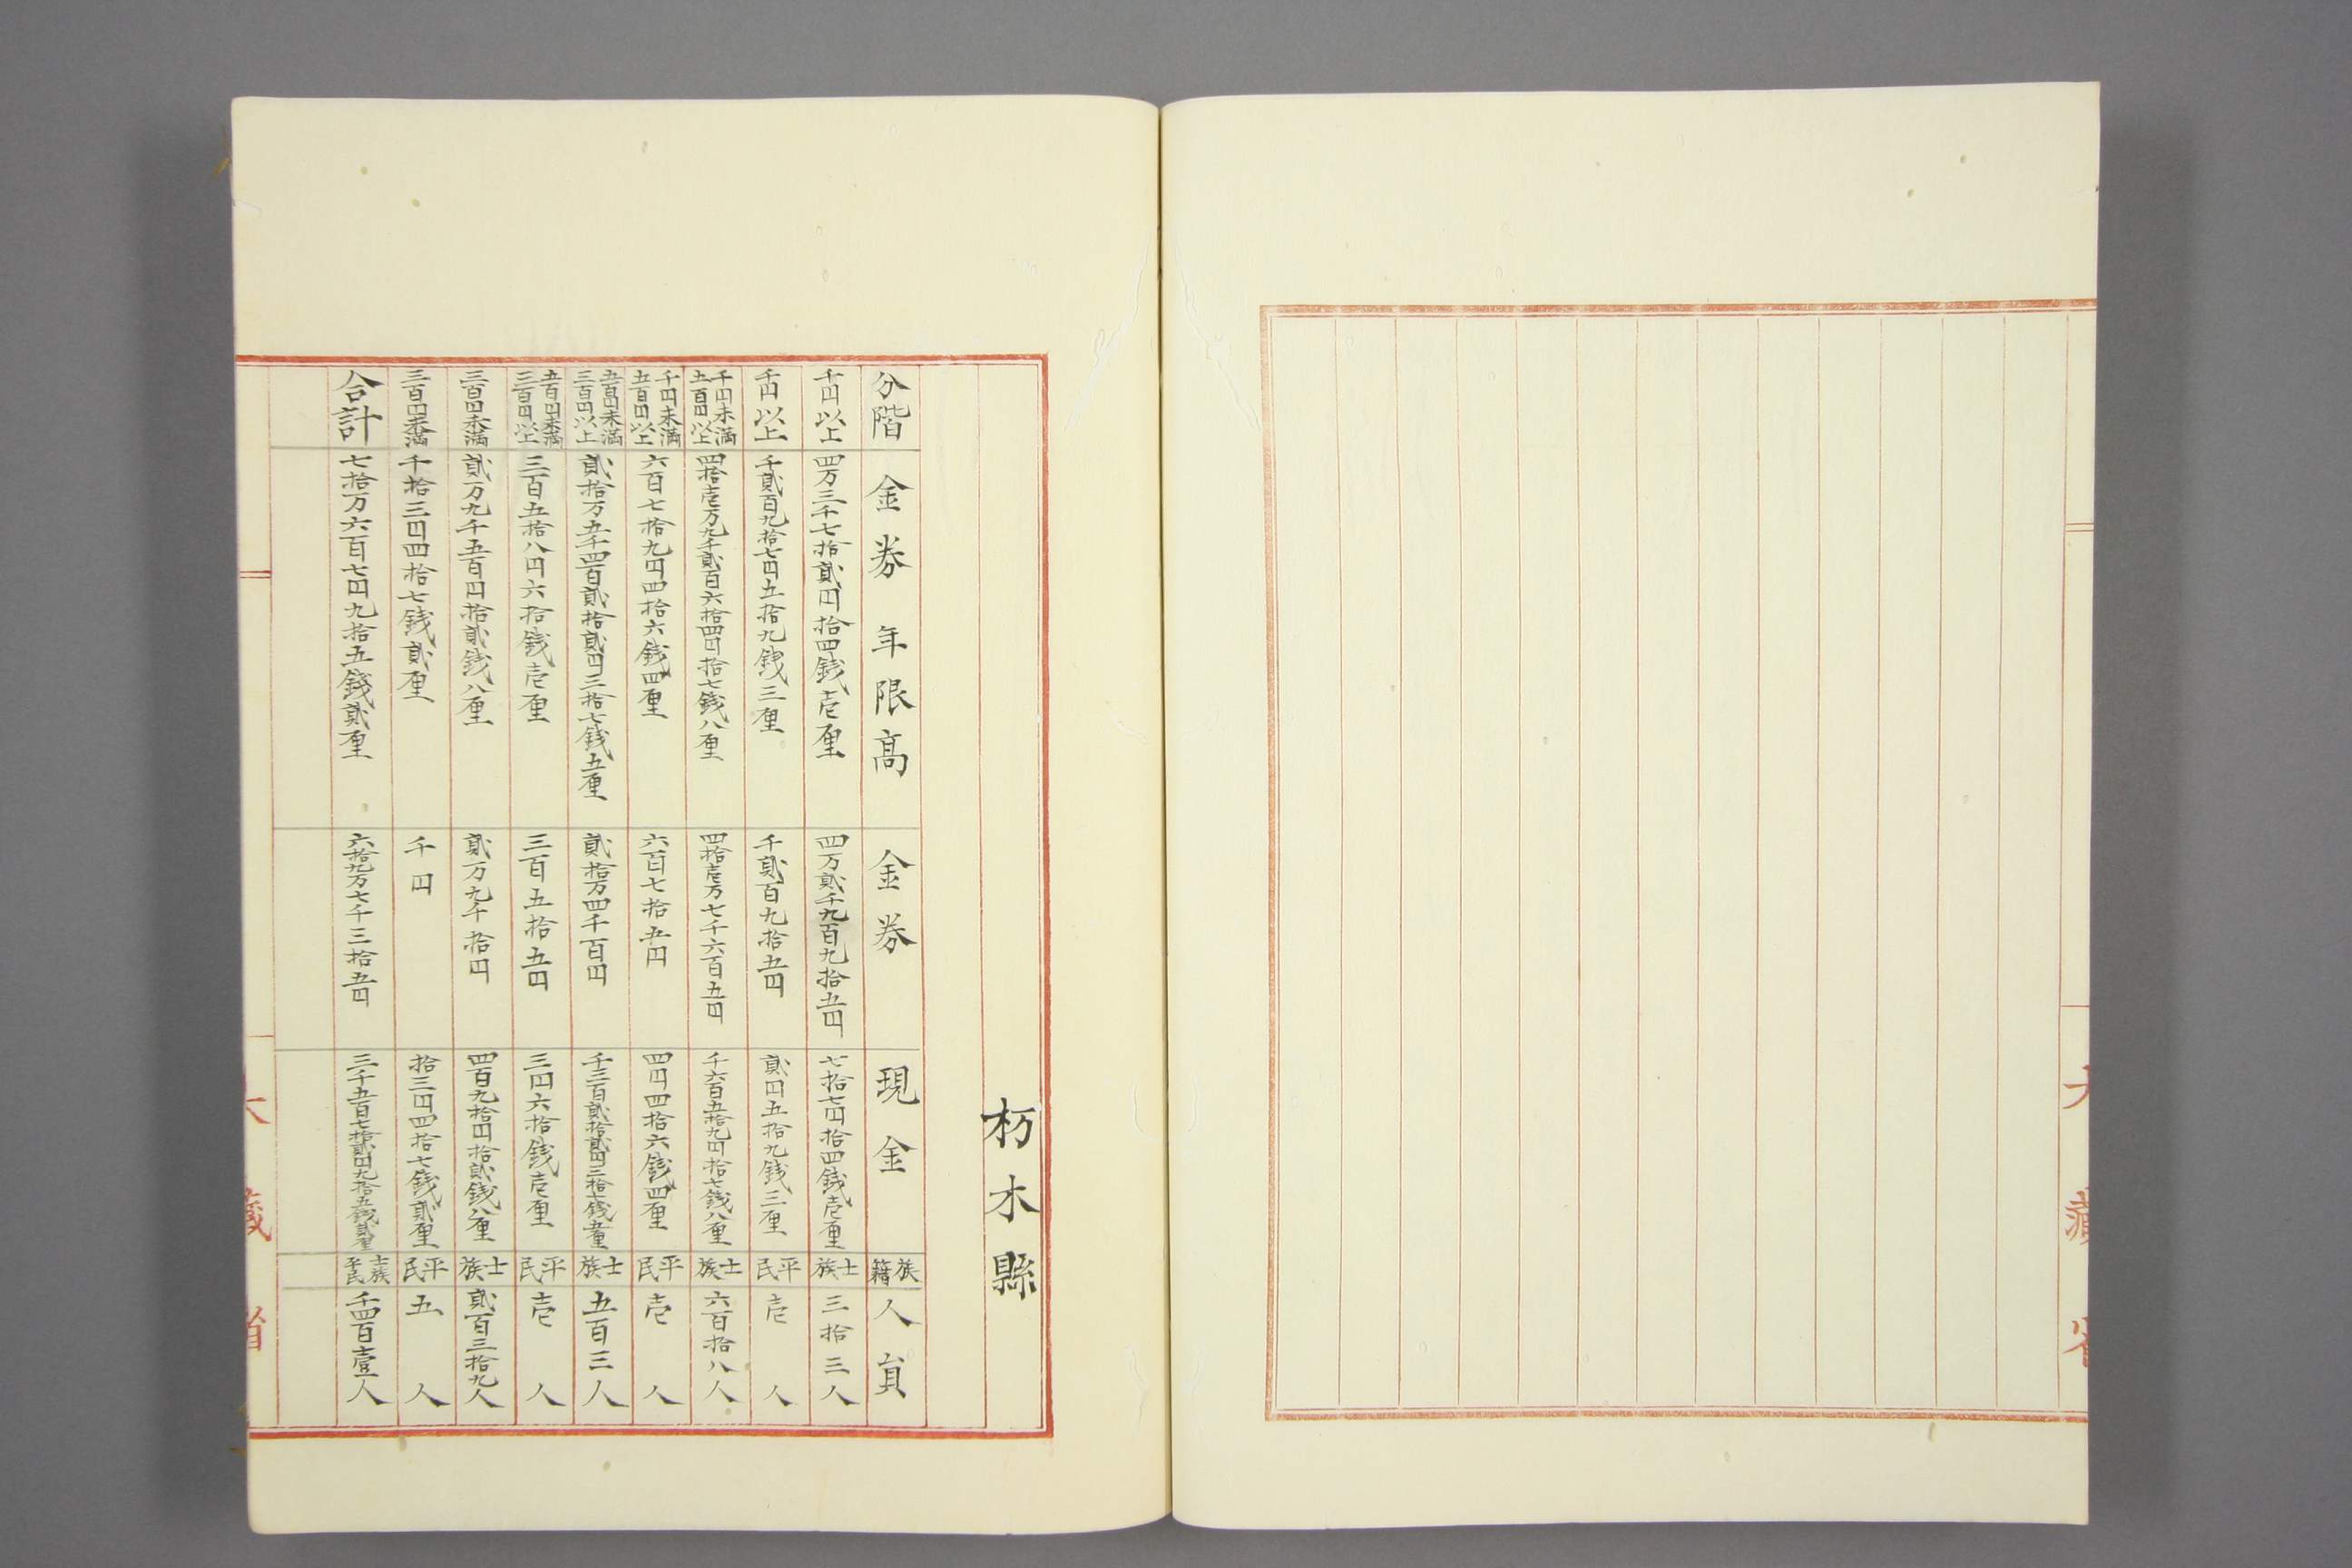 大藏省
杤木縣
分階 金券年限高 金券 現金 族籍 人員
千円以上 四万三千七拾貳円拾四銭壱厘 四万貳千九百九拾五円 七拾七円拾四銭壱厘 士族 三拾三人
千円以上 千貳百九拾七円五拾九銭三厘 千貳百九拾五円 貳円五拾九銭三厘 平民 壱人
千円未満五百円以上 四拾壱万九千貳百六拾四円拾七銭八厘 四拾壱万七千六百五円 千六百五拾九円拾七銭八厘 士族 六百拾八人
千円未満五百円以上 六百七拾九円四拾六銭四厘 六百七拾五円 四円四拾六銭四厘 平民 壱人
五百円未満三百円以上 貳拾万五千四百貳拾貳円三拾七銭五厘 貳拾万四千百円 千三百貳拾貳円三拾七銭五厘 士族 五百三人
五百円未満三百円以上 三百五拾八円六拾銭壱厘 三百五拾五円 三円六拾銭壱厘 平民 壱人
三百円未満 貳万九千五百円拾貳銭八厘 貳万九千拾円 四百九拾円拾貳銭八厘 士族 貳百三拾九人
三百円未満 千拾三円四拾七銭貳厘 千円 拾三円四拾七銭貳厘 平民 五人
合計 七拾万六百七円九拾五銭貳厘 六拾九万七千三拾五円 三千五百七拾貳円九拾五銭貳厘 士族平民 千四百壹人
大藏省